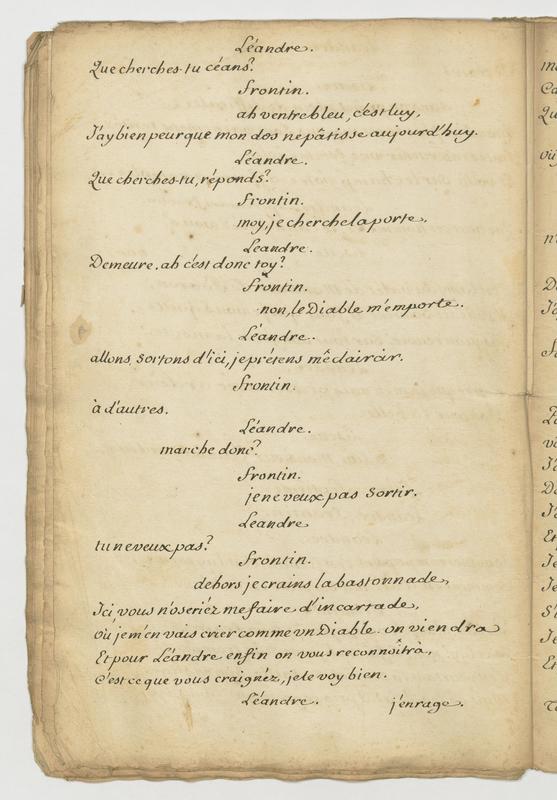 Léandre.
Que cherches-tu céans?
Frontin.
ah ventrebleu, c'est luy,
J'ay bien peur que mon dos ne pâtisse aujourd'huy.
Léandre.
Que cherches-tu, réponds?
Frontin.
moy, je cherche la porte,
Leandre.
Demeure. ah c'est donc toy?
Frontin.
non, le Diable m'emporte.
Léandre.
allons, sortons d'ici, je prétens m'éclaircir.
Frontin.
à d'autres.
Léandre.
marche donc?
Frontin.
je ne veux pas Sortir.
Leandre
tu ne veux pas?
Frontin.
dehors je crains la bastonnade,
Ici vous n'oseriéz me faire d'incartade,
Où je m'en vais crier comme un Diable. on viendra
Et pour Léandre enfin on vous reconnoîtra,
C'est ce que vous craignéz, je le voy bien.
Léandre. j'enrage.